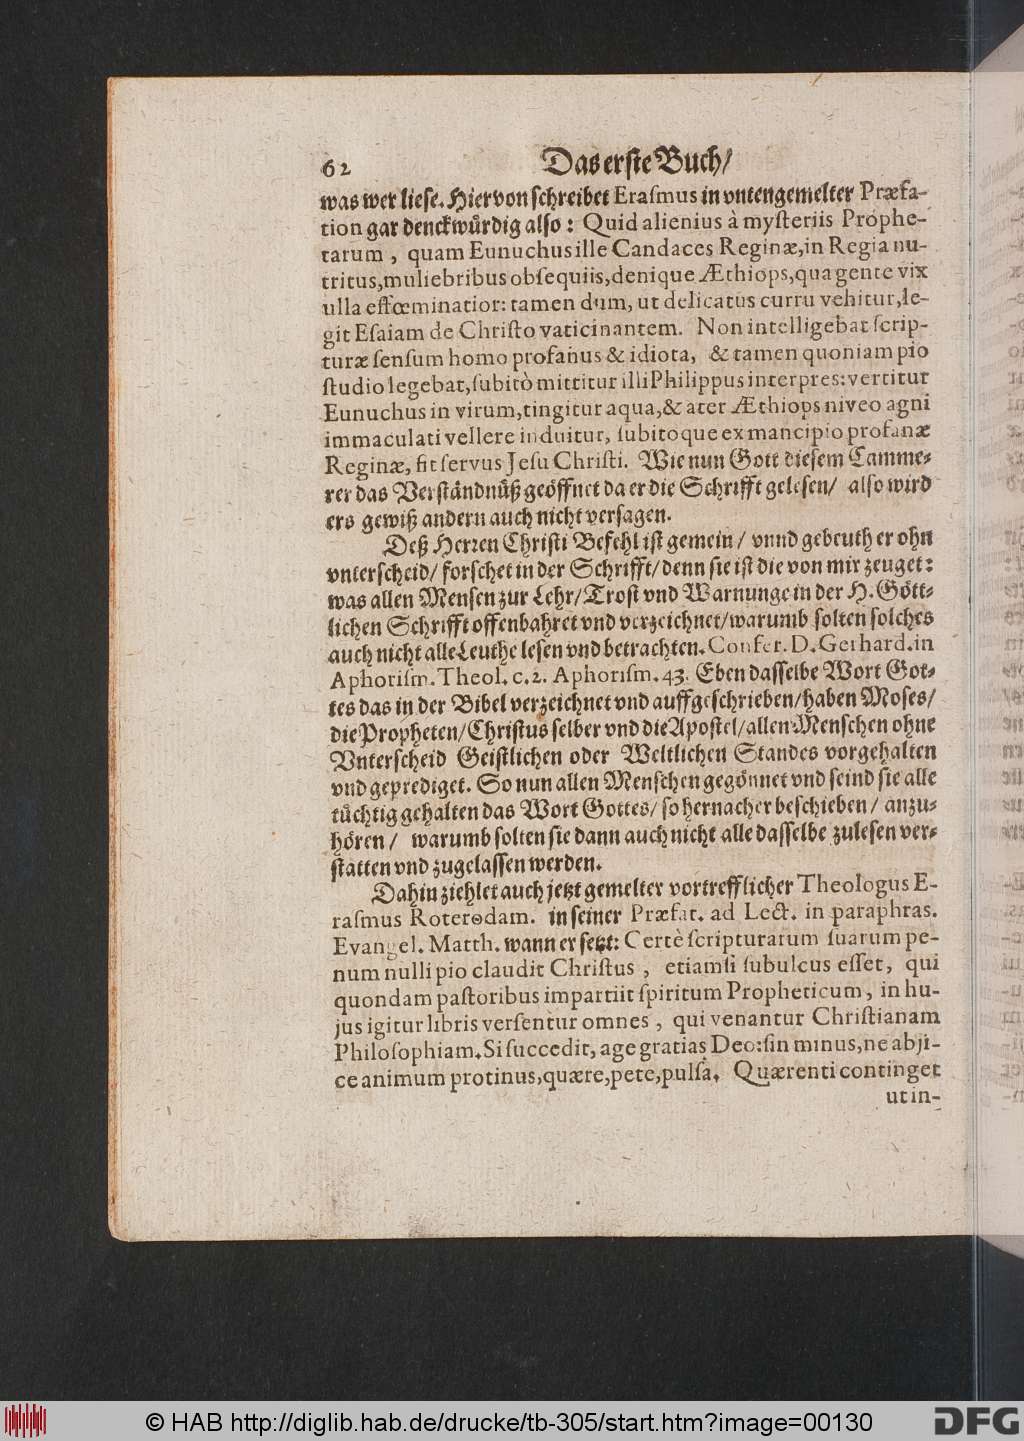 62 Das erste Buch/
was wer liese. Hiervon schreibet Eraſmus in vntengemelter Præfa-
tion gar denckwürdig also: Quid alienius à myſteriis Prophe-
tarum, quam Eunuchus ille Candaces Reginæ, in Regia nu-
tritus, muliebribus obſequiis, denique Æthiops, qua gente vix
ulla effœminatior: tamen dum, ut delicatus curru vehitur, le-
git Eſaiam de Chriſto vaticinantem. Non intelligebat ſcrip-
turæ ſenſum homo profanus & idiota, & tamen quoniam pio
ſtudio legebat, ſubitò mittitur illi Philippus interpres: vertitur
Eunuchus in virum, tingitur aqua, & ater Æthiops niveo agni
immaculati vellere induitur, ſubitoque ex mancipio profanæ
Reginæ, fit ſervus Jeſu Chriſti. Wie nun Gott diesem Camme-
rer das Verständnüß geöffnet da er die Schrifft gelesen/ also wird
ers gewiß andern auch nicht versagen.
Deß Herren Christi Befehl ist gemein/ vnnd gebeuth er ohn
vnterscheid/ forschet in der Schrifft/ denn sie ist die von mir zeuget:
was allen Mensen zur Lehr/ Trost vnd Warnunge in der H. Gött-
lichen Schrifft offenbahret vnd verzeichnet/ warumb solten solches
auch nicht alle Leuthe lesen vnd betrachten. Confer. D. Gerhard. in
Aphoriſm. Theol. c. 2. Aphoriſm. 43. Eben dasselbe Wort Got-
tes das in der Bibel verzeichnet vnd auffgeschrieben/ haben Moses/
die Propheten/ Christus selber vnd die Apostel/ allen Menschen ohne
Vnterscheid Geistlichen oder Weltlichen Standes vorgehalten
vnd geprediget. So nun allen Menschen gegönnet vnd seind sie alle
tüchtig gehalten das Wort Gottes/ so hernacher beschieben/ anzu-
hören/ warumb solten sie dann auch nicht alle dasselbe zulesen ver-
statten vnd zugelassen werden.
Dahin ziehlet auch jetzt gemelter vortrefflicher Theologus E-
raſmus Roterodam. in seiner Præfat. ad Lect. in paraphras.
Evangel. Matth. wann er setzt: Certè ſcripturarum ſuarum pe-
num nulli pio claudit Chriſtus, etiamſi ſubulcus eſſet, qui
quondam paſtoribus impartiit ſpiritum Propheticum, in hu-
jus igitur libris verſentur omnes, qui venantur Chriſtianam
Philoſophiam. Si ſuccedit, age gratias Deo: ſin minus, ne abji-
ce animum protinus, quære, pete, pulſa. Quærenti continget
ut in-
© HAB http://diglib.hab.de/drucke/tb-305/start.htm?image=00130
DFG